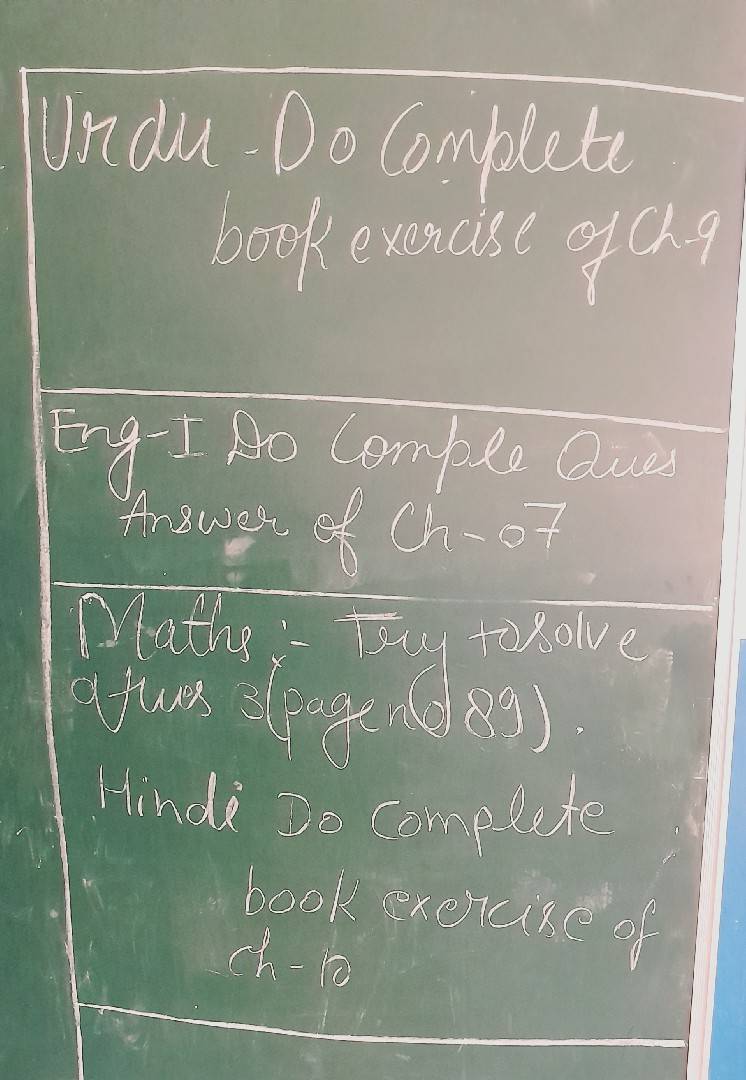 Urdu - Do Complete
book exercise of Ch-9
Eng-I Do Comple Ques
Answer of Ch-07
Maths :- Try to solve
Ques 3 (page no 89).
Hindi Do Complete
book exercise of
Ch-10